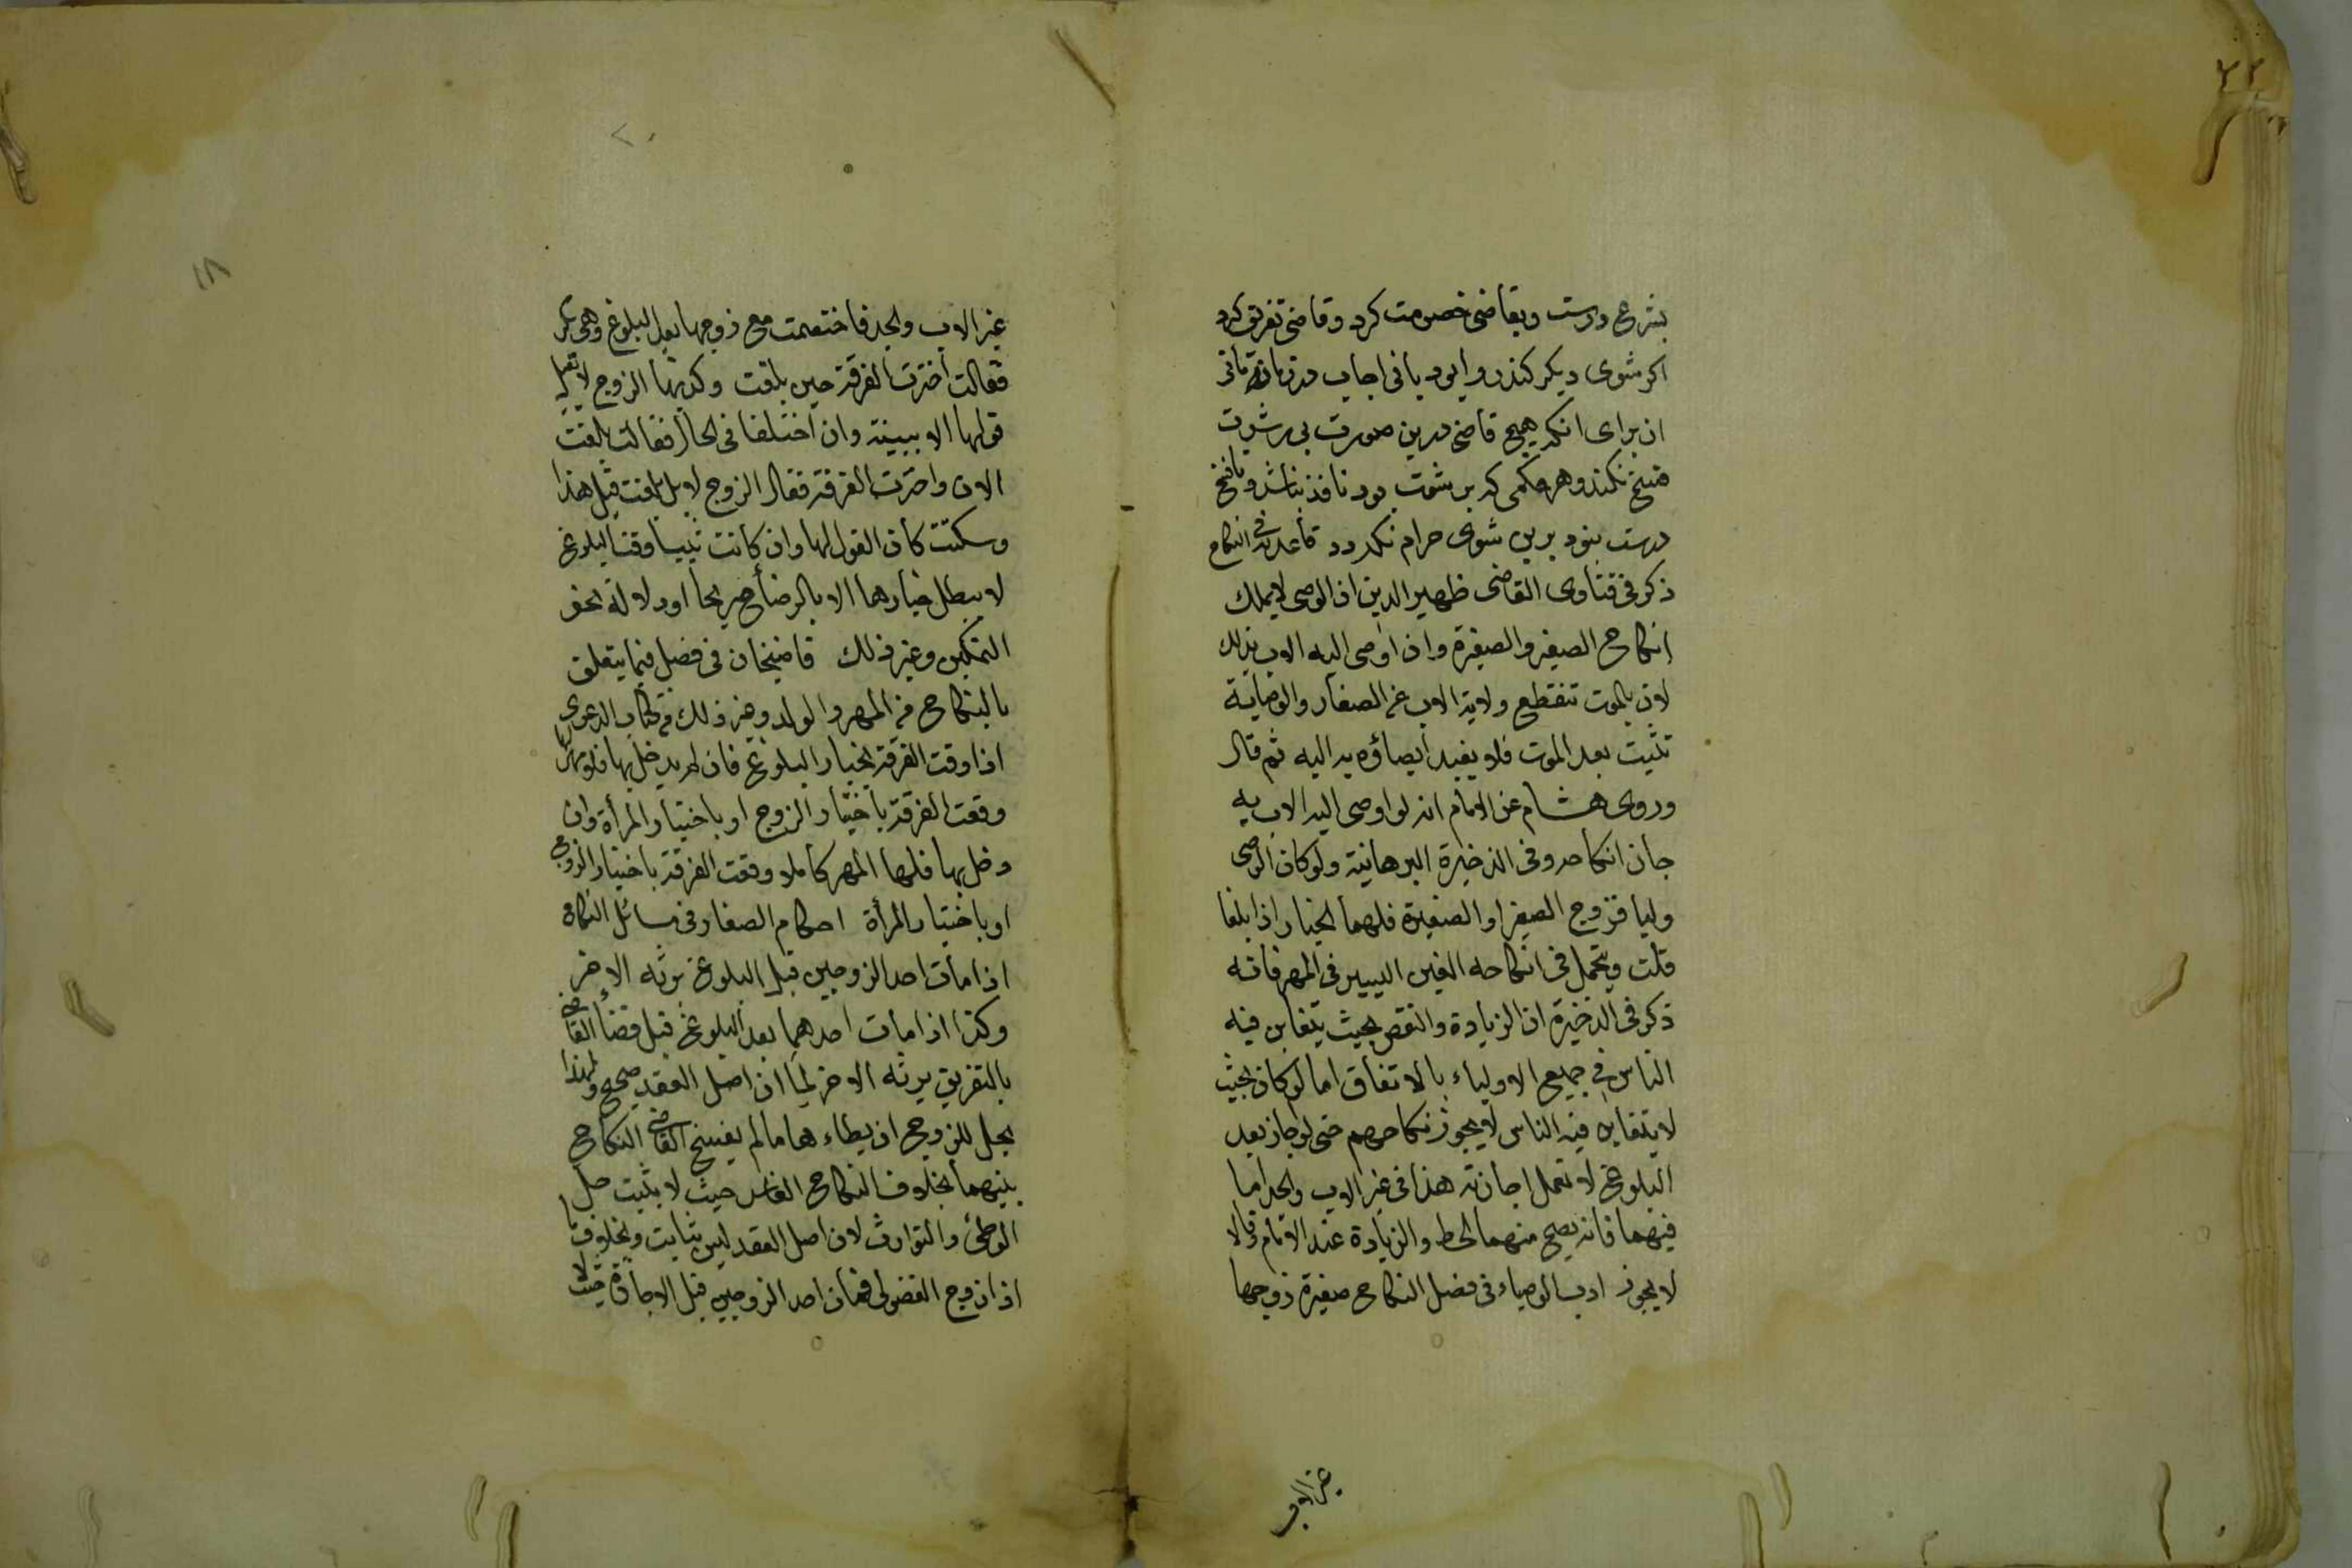 بشرع درست وبقاضى خصومت كرد وقاضى تفريق كرد
اكر شوى ديكر كند روا بود يا نى اجاب
از براى انكه هيچ قاضى درين صورت بى رشوت
فسخ نكند وهر حكمى كه بر شوت بود نافذ نباشد وتا فسخ
درست نبود برين شوى حرام نكردد قاعديه فى النكاح
ذكر فى فتاوى القاضى ظهير الدين ان الوصى لا يملك
انكاح الصغير والصغيرة وان اوصى اليه الاب بذلك
لان بالموت تنقطع ولاية الاب عن الصغار والوصاية
تثبت بعد الموت فلا يفيد ايصاؤه به اليه ثم قال
وروى هشام عن الامام انه لو اوصى اليه الاب به
جاز انكاحه وفى الذخيرة البرهانية ولو كان الوصى
وليا فزوج الصغير او الصغيرة فلهما الخيار اذا بلغا
قلت ويتحمل فى انكاحه الغبن اليسير فى المهر فانه
ذكر فى الذخيرة ان الزيادة والنقص بحيث يتغابن فيه
الناس فى جميع الاولياء بالاتفاق اما لو كان بحيث
لا يتغابن فيه الناس لا يجوز نكاحهم حتى لو اجاز بعد
البلوغ لا تعمل اجازته هذا فى غير الاب والجد اما
فيهما فانه يصح منهما الحط والزيادة عند الامام وقالا
لا يجوز ادب الاوصياء فى فصل النكاح صغيرة زوجها
غير الاب
٢٢
غير الاب والجد فاختصمت مع زوجها بعد البلوغ وهى بكر
فقالت اخترت الفرقة حين بلغت وكذبها الزوج لا يقبل
قولها الا ببينة وان اختلفا فى الحال فقالت بلغت
الان واخترت الفرقة فقال الزوج لا بل بلغت قبل هذا
وسكتت كان القول لها وان كانت ثيبا وقت البلوغ
لا يبطل خيارها الا بالرضا صريحا او دلالة نحو
التمكين وغير ذلك قاضيخان فى فصل فيما يتعلق
بالنكاح من المهر والولد وغير ذلك من كتاب الدعوى
اذا وقعت الفرقة بخيار البلوغ فان لم يدخل بها فلا مهر لها
وقعت الفرقة باختيار الزوج او باختيار المرأة وان
دخل بها فلها المهر كاملا وقعت الفرقة باختيار الزوج
او باختيار المرأة احكام الصغار فى مسائل النكاح
اذا مات احد الزوجين قبل البلوغ يرثه الاخر
وكذا اذا مات احدهما بعد البلوغ قبل قضاء القاضى
بالتفريق يرثه الاخر لما ان اصل العقد صحيح ولهذا
يحل للزوج ان يطاءها ما لم يفسخ القاضى النكاح
بينهما بخلاف النكاح الفاسد حيث لا يثبت حل
الوطئ والتوارث لان اصل العقد ليس بثابت وبخلاف ما
اذا زوج الفضولى فمات احد الزوجين قبل الاجازة حيث لا
١٨